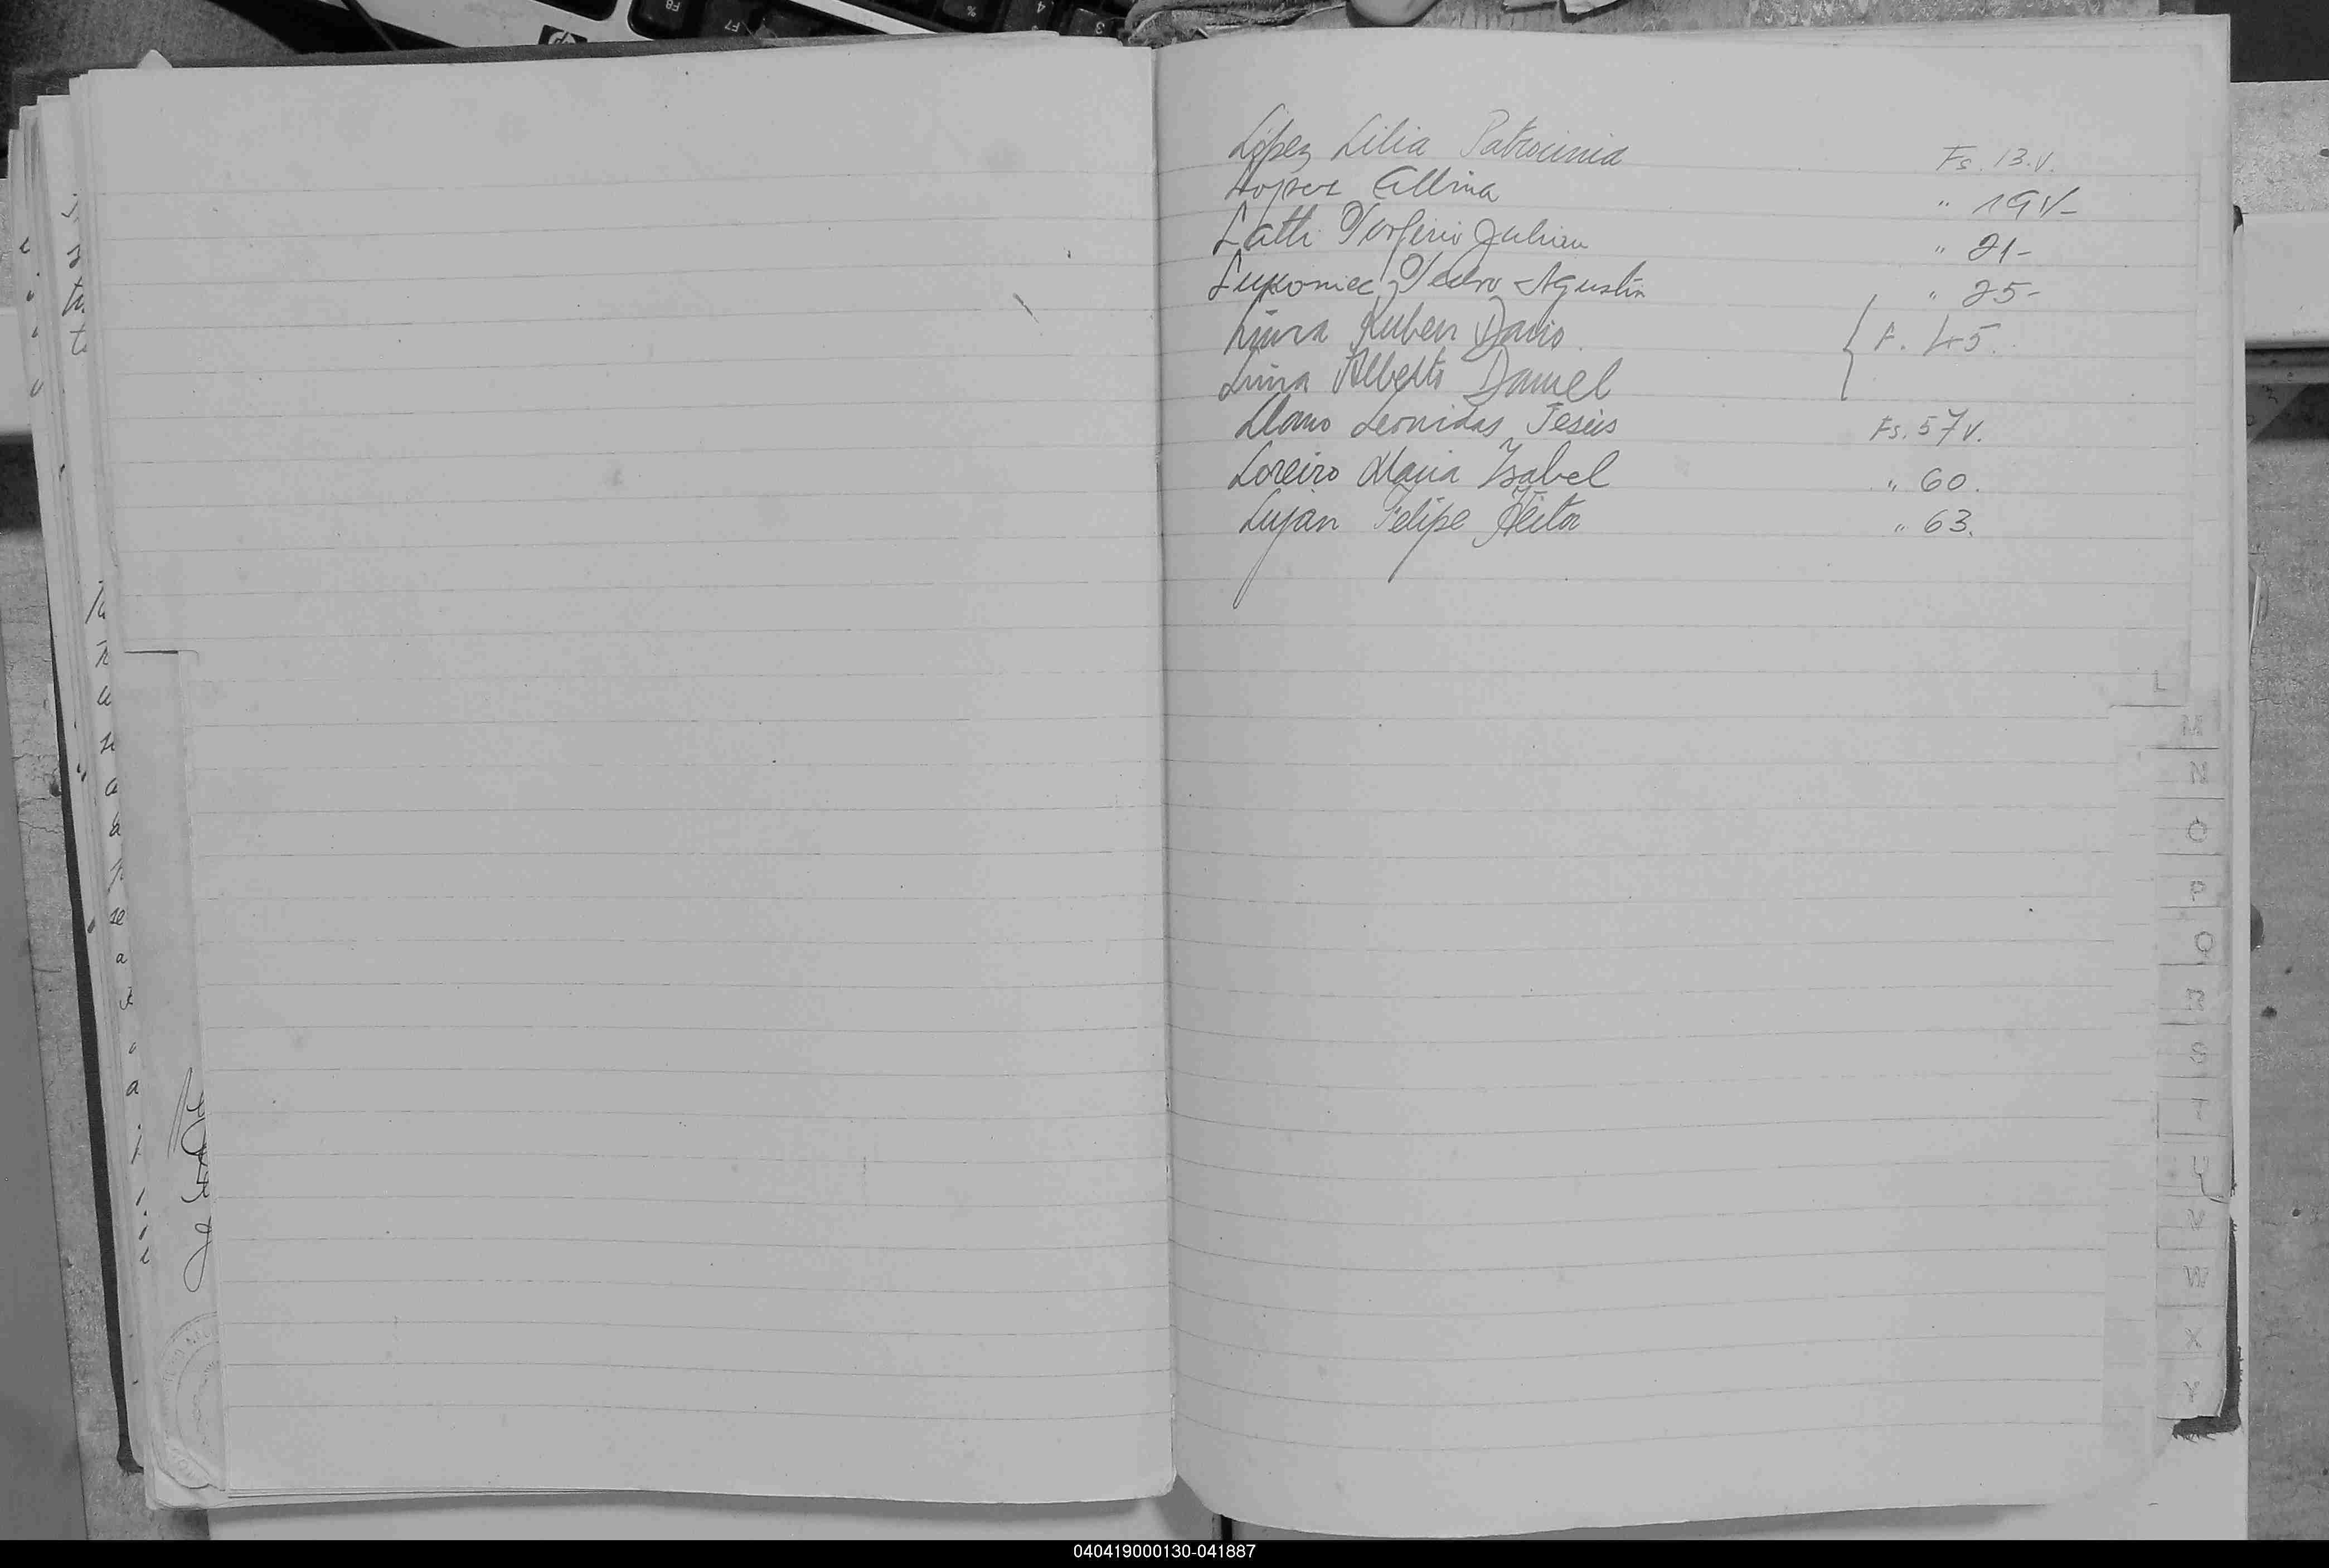 López Lilia Patrocinia Fs. 13.v.
Lopez Albina " 19 V-
Latti Porfirio Julian " 21-
Lukomiec Pedro Agustín " 25-
Luna Ruben Dario. F. 45.
Luna Alberto Daniel
Llano Leonidas Jesús Fs. 57 v.
Loreiro Maria Ysabel " 60.
Luján Felipe Héctor " 63.
L
M
N
O
P
Q
R
S
T
U
V
W
X
Y
040419000130-041887